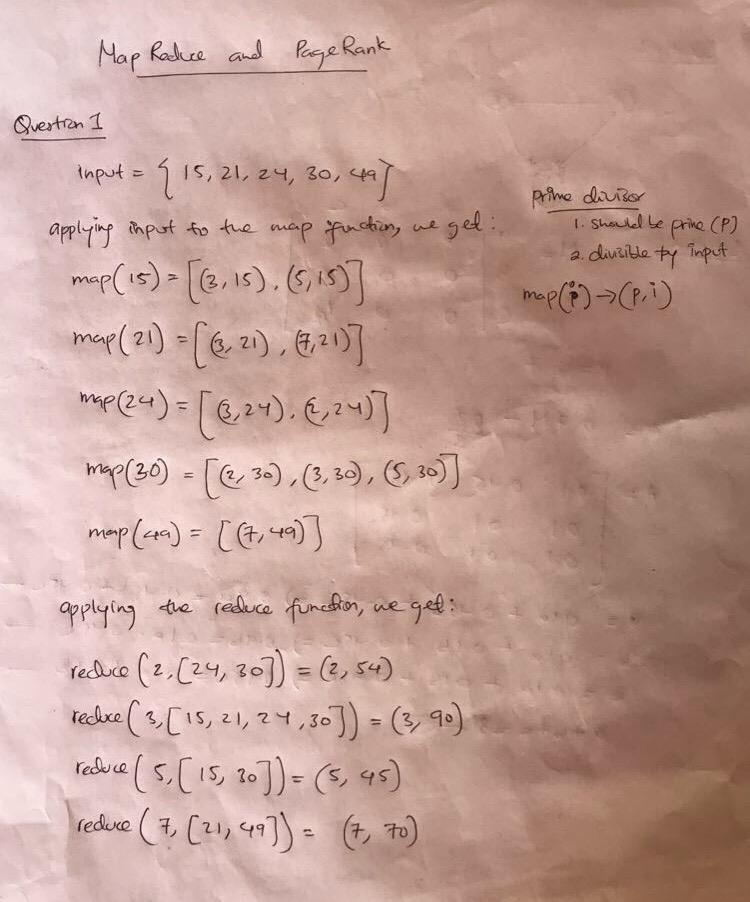 Map Reduce and PageRank
Question 1
input = { 15, 21, 24, 30, 49}
applying input to the map function, we get:
map(15) = [(3, 15), (5, 15)]
map(21) = [(3, 21), (7, 21)]
map(24) = [(3, 24), (2, 24)]
map(30) = [(2, 30), (3, 30), (5, 30)]
map(49) = [(7, 49)]
prime divisor
1. should be prime (P)
2. divisible by input
map(i) → (P, i)
applying the reduce function, we get:
reduce (2, [24, 30]) = (2, 54)
reduce (3, [15, 21, 24, 30]) = (3, 90)
reduce (5, [15, 30]) = (5, 45)
reduce (7, [21, 49]) = (7, 70)